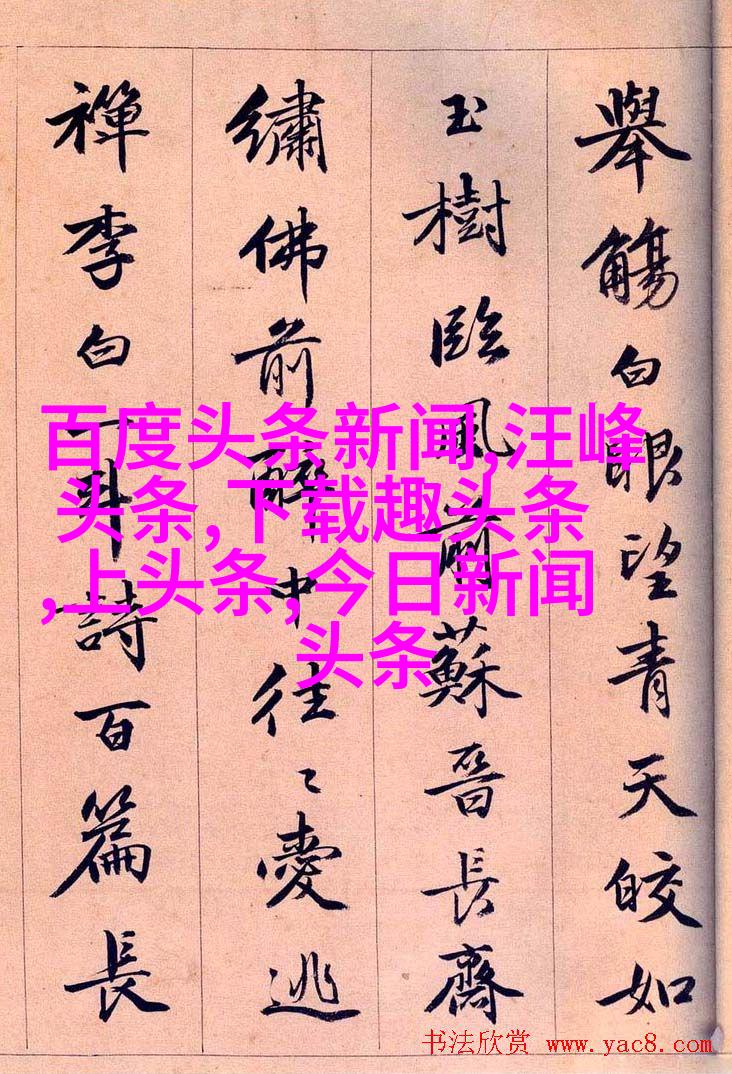 舉觴白眼望青天皎如
玉樹臨風前蘇晉長齋
繡佛前醉中往〻愛逃
禪李白一斗詩百篇長
百度头条新闻,汪峰
头条,下载趣头条
,上头条,今日新闻
头条
书法欣赏 www.yac8.com